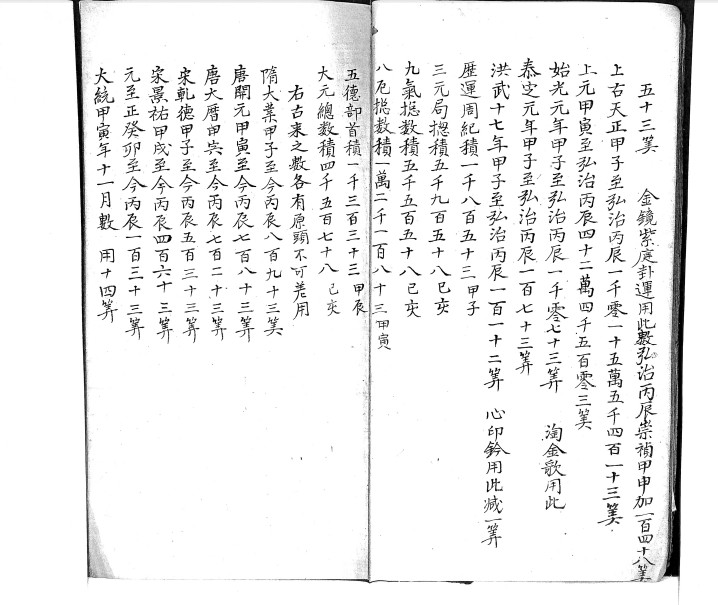 五十三筭　金鏡紫庭卦運用此數弘治丙辰崇禎甲申加一百四十八筭
上古天正甲子至弘治丙辰一千零一十五萬五千四百一十三筭
上元甲寅至弘治丙辰四十二萬四千五百零三筭
始光元年甲子至弘治丙辰一千零七十三筭　淘金歌用此
泰定元年甲子至弘治丙辰一百七十三筭
洪武十七年甲子至弘治丙辰一百一十二筭　心印鈐用此減一筭
歷運周紀積一千八百五十三甲子
三元局揔積五千九百五十八己亥
九氣揔數積五千五百五十八己亥
八厄揔數積一萬二千一百八十三甲寅
五德部首積一千三百三十三甲辰
大元總數積四千五百七十八己亥
右古來之數各有原頭不可差用
隋大業甲子至今丙辰八百九十三筭
唐開元甲寅至今丙辰七百八十三筭
唐大曆甲寅至今丙辰七百二十三筭
宋乹德甲子至今丙辰五百三十三筭
宋景祐甲戌至今丙辰四百六十三筭
元至正癸卯至今丙辰一百三十三筭
大統甲寅年十一月數　用十四筭